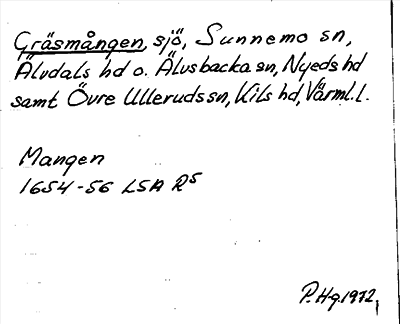 Gräsmången, sjö, Sunnemo sn,
Älvdals hd o. Älvsbacka sn, Nyeds hd
samt Övre Ulleruds sn, Kils hd, Värml. l.
Mangen
1654-56 LSA R5
P. Hg. 1972